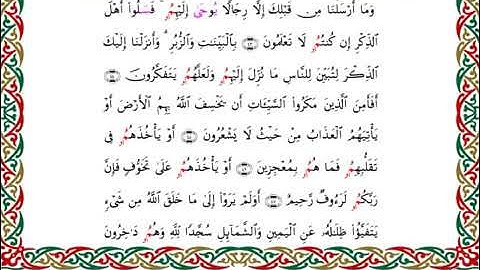 وَمَا أَرْسَلْنَا مِن قَبْلِكَ إِلَّا رِجَالًا يُوحَىٰ إِلَيْهِمُۥ فَسَلُوا۟ أَهْلَ
ٱلذِّكْرِ إِن كُنتُمُۥ لَا تَعْلَمُونَ ۝ بِٱلْبَيِّنَٰتِ وَٱلزُّبُرِ وَأَنزَلْنَا إِلَيْكَ
ٱلذِّكْرَ لِتُبَيِّنَ لِلنَّاسِ مَا نُزِّلَ إِلَيْهِمُۥ وَلَعَلَّهُمُۥ يَتَفَكَّرُونَ ۝
أَفَأَمِنَ ٱلَّذِينَ مَكَرُوا۟ ٱلسَّيِّـَٔاتِ أَن يَخْسِفَ ٱللَّهُ بِهِمُ ٱلْأَرْضَ أَوْ
يَأْتِيَهُمُ ٱلْعَذَابُ مِنْ حَيْثُ لَا يَشْعُرُونَ ۝ أَوْ يَأْخُذَهُمُۥ فِى
تَقَلُّبِهِمُۥ فَمَا هُمُۥ بِمُعْجِزِينَ ۝ أَوْ يَأْخُذَهُمُۥ عَلَىٰ تَخَوُّفٍ فَإِنَّ
رَبَّكُمُۥ لَرَءُوفٌ رَّحِيمٌ ۝ أَوَلَمْ يَرَوْا۟ إِلَىٰ مَا خَلَقَ ٱللَّهُ مِن شَىْءٍ
يَتَفَيَّؤُا۟ ظِلَٰلُهُۥ عَنِ ٱلْيَمِينِ وَٱلشَّمَآئِلِ سُجَّدًا لِّلَّهِ وَهُمُۥ دَٰخِرُونَ